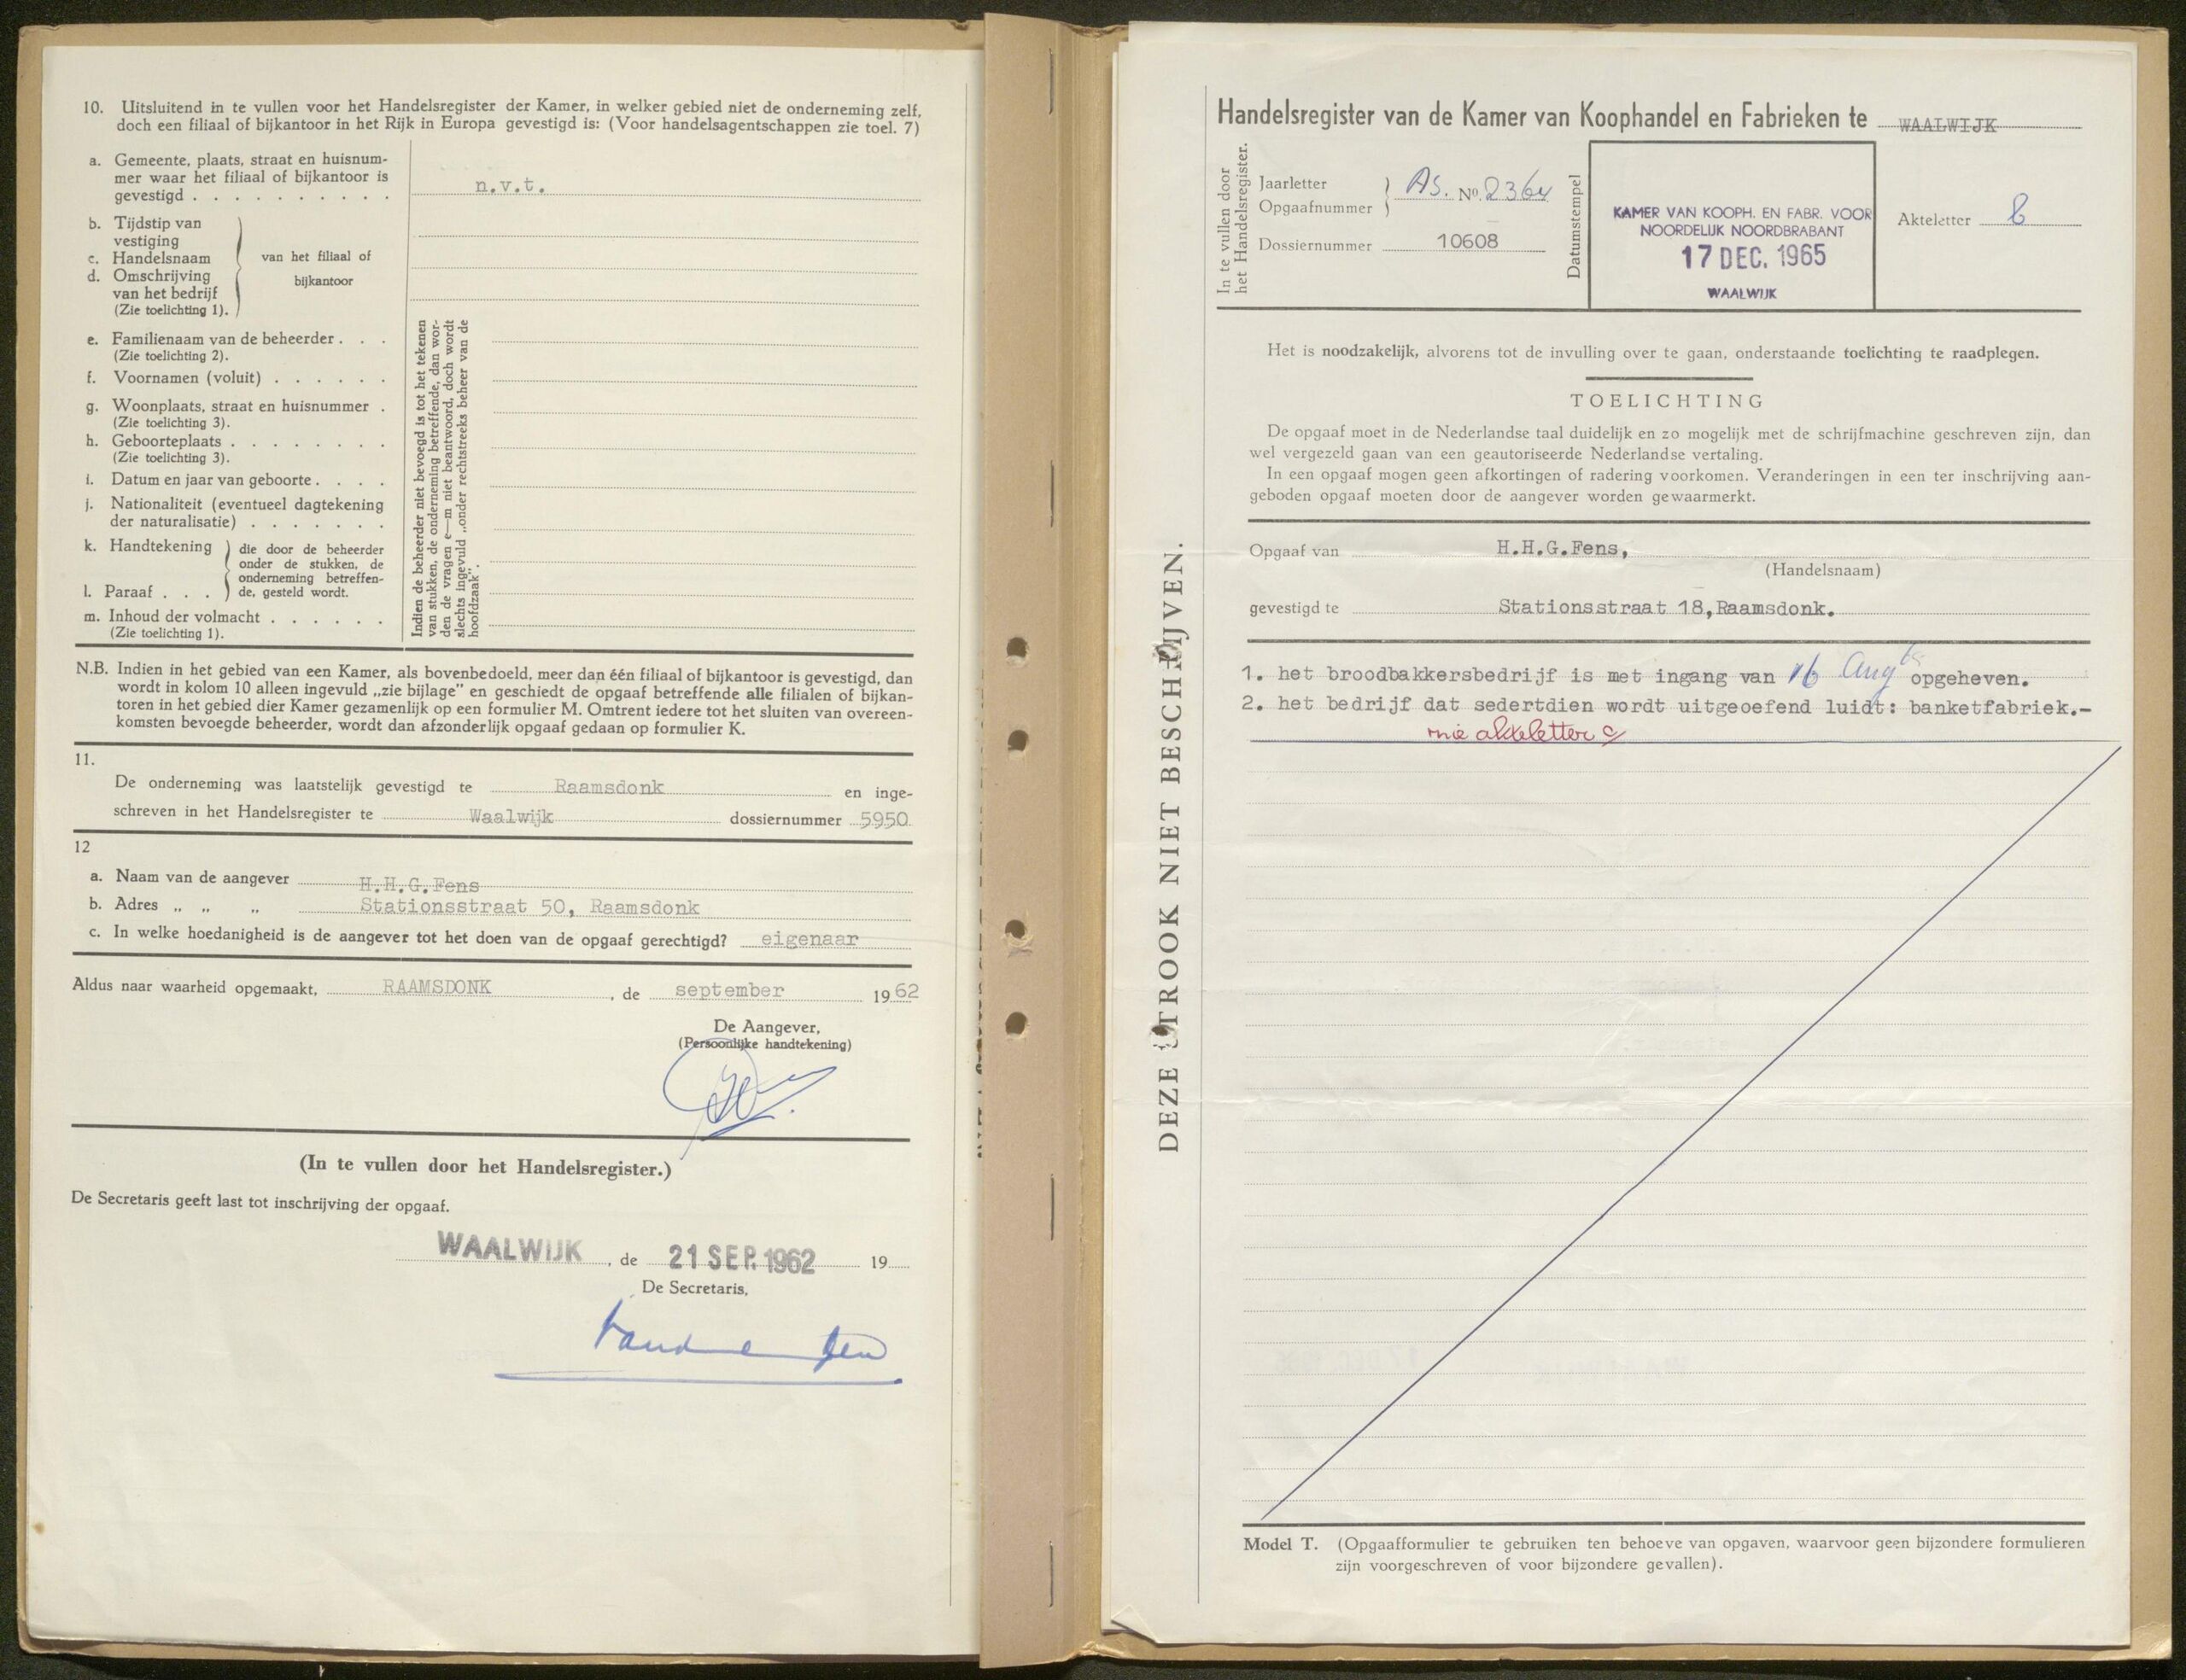 10. Uitsluitend in te vullen voor het Handelsregister der Kamer, in welker gebied niet de onderneming zelf,
doch een filiaal of bijkantoor in het Rijk in Europa gevestigd is: (Voor handelsagentschappen zie toel. 7)
a. Gemeente, plaats, straat en huisnum-
mer waar het filiaal of bijkantoor is
gevestigd . . . . . . . . . . n.v.t.
b. Tijdstip van
vestiging
c. Handelsnaam
d. Omschrijving
van het bedrijf
(Zie toelichting 1).
van het filiaal of
bijkantoor
e. Familienaam van de beheerder . . .
(Zie toelichting 2).
f. Voornamen (voluit) . . . . . .
g. Woonplaats, straat en huisnummer .
(Zie toelichting 3).
h. Geboorteplaats . . . . . . . .
(Zie toelichting 3).
i. Datum en jaar van geboorte . . . .
j. Nationaliteit (eventueel dagtekening
der naturalisatie) . . . . . . .
k. Handtekening
l. Paraaf . . .
die door de beheerder
onder de stukken, de
onderneming betreffen-
de, gesteld wordt.
m. Inhoud der volmacht . . . . . .
(Zie toelichting 1).
Indien de beheerder niet bevoegd is tot het tekenen
van stukken, de onderneming betreffende, dan wor-
den de vragen e—m niet beantwoord, doch wordt
slechts ingevuld „onder rechtstreeks beheer van de
hoofdzaak".
N.B. Indien in het gebied van een Kamer, als bovenbedoeld, meer dan één filiaal of bijkantoor is gevestigd, dan
wordt in kolom 10 alleen ingevuld „zie bijlage" en geschiedt de opgaaf betreffende alle filialen of bijkan-
toren in het gebied dier Kamer gezamenlijk op een formulier M. Omtrent iedere tot het sluiten van overeen-
komsten bevoegde beheerder, wordt dan afzonderlijk opgaaf gedaan op formulier K.
11.
De onderneming was laatstelijk gevestigd te Raamsdonk en inge-
schreven in het Handelsregister te Waalwijk dossiernummer 5950
12
a. Naam van de aangever H.H.G.Fens
b. Adres „ „ „ Stationsstraat 50, Raamsdonk
c. In welke hoedanigheid is de aangever tot het doen van de opgaaf gerechtigd? eigenaar
Aldus naar waarheid opgemaakt, RAAMSDONK, de september 1962
De Aangever,
(Persoonlijke handtekening)
(In te vullen door het Handelsregister.)
De Secretaris geeft last tot inschrijving der opgaaf.
WAALWIJK, de 21 SEP. 1962 19
De Secretaris,
DEZE STROOK NIET BESCHRIJVEN.
Handelsregister van de Kamer van Koophandel en Fabrieken te WAALWIJK
In te vullen door
het Handelsregister.
Jaarletter
Opgaafnummer
AS. No. 2364
Dossiernummer 10608
Datumstempel
KAMER VAN KOOPH. EN FABR. VOOR
NOORDELIJK NOORDBRABANT
17 DEC. 1965
WAALWIJK
Akteletter
Het is noodzakelijk, alvorens tot de invulling over te gaan, onderstaande toelichting te raadplegen.
TOELICHTING
De opgaaf moet in de Nederlandse taal duidelijk en zo mogelijk met de schrijfmachine geschreven zijn, dan
wel vergezeld gaan van een geautoriseerde Nederlandse vertaling.
In een opgaaf mogen geen afkortingen of radering voorkomen. Veranderingen in een ter inschrijving aan-
geboden opgaaf moeten door de aangever worden gewaarmerkt.
Opgaaf van H.H.G.Fens,
(Handelsnaam)
gevestigd te Stationsstraat 18,Raamsdonk.
1. het broodbakkersbedrijf is met ingang van 16 Aug opgeheven.
2. het bedrijf dat sedertdien wordt uitgeoefend luidt: banketfabriek.-
akteletter c
Model T. (Opgaafformulier te gebruiken ten behoeve van opgaven, waarvoor geen bijzondere formulieren
zijn voorgeschreven of voor bijzondere gevallen).